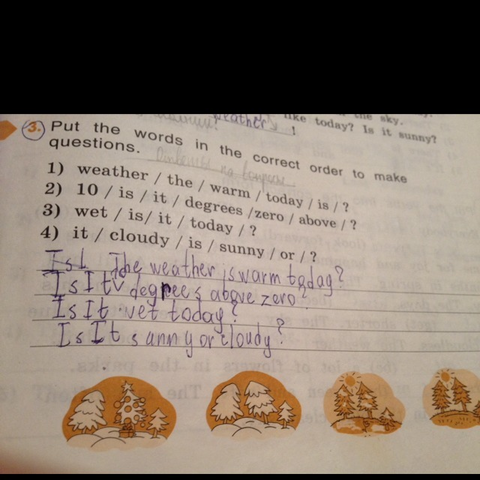 the sky.
weather's like today? Is it sunny?
3. Put the words in the correct order to make
questions.
1) weather / the / warm / today / is / ?
2) 10 / is / it / degrees /zero / above / ?
3) wet / is/ it / today / ?
4) it / cloudy / is / sunny / or / ?
Is The weather is warm today?
Is It degrees above zero?
Is It wet today?
Is It sunny or cloudy?